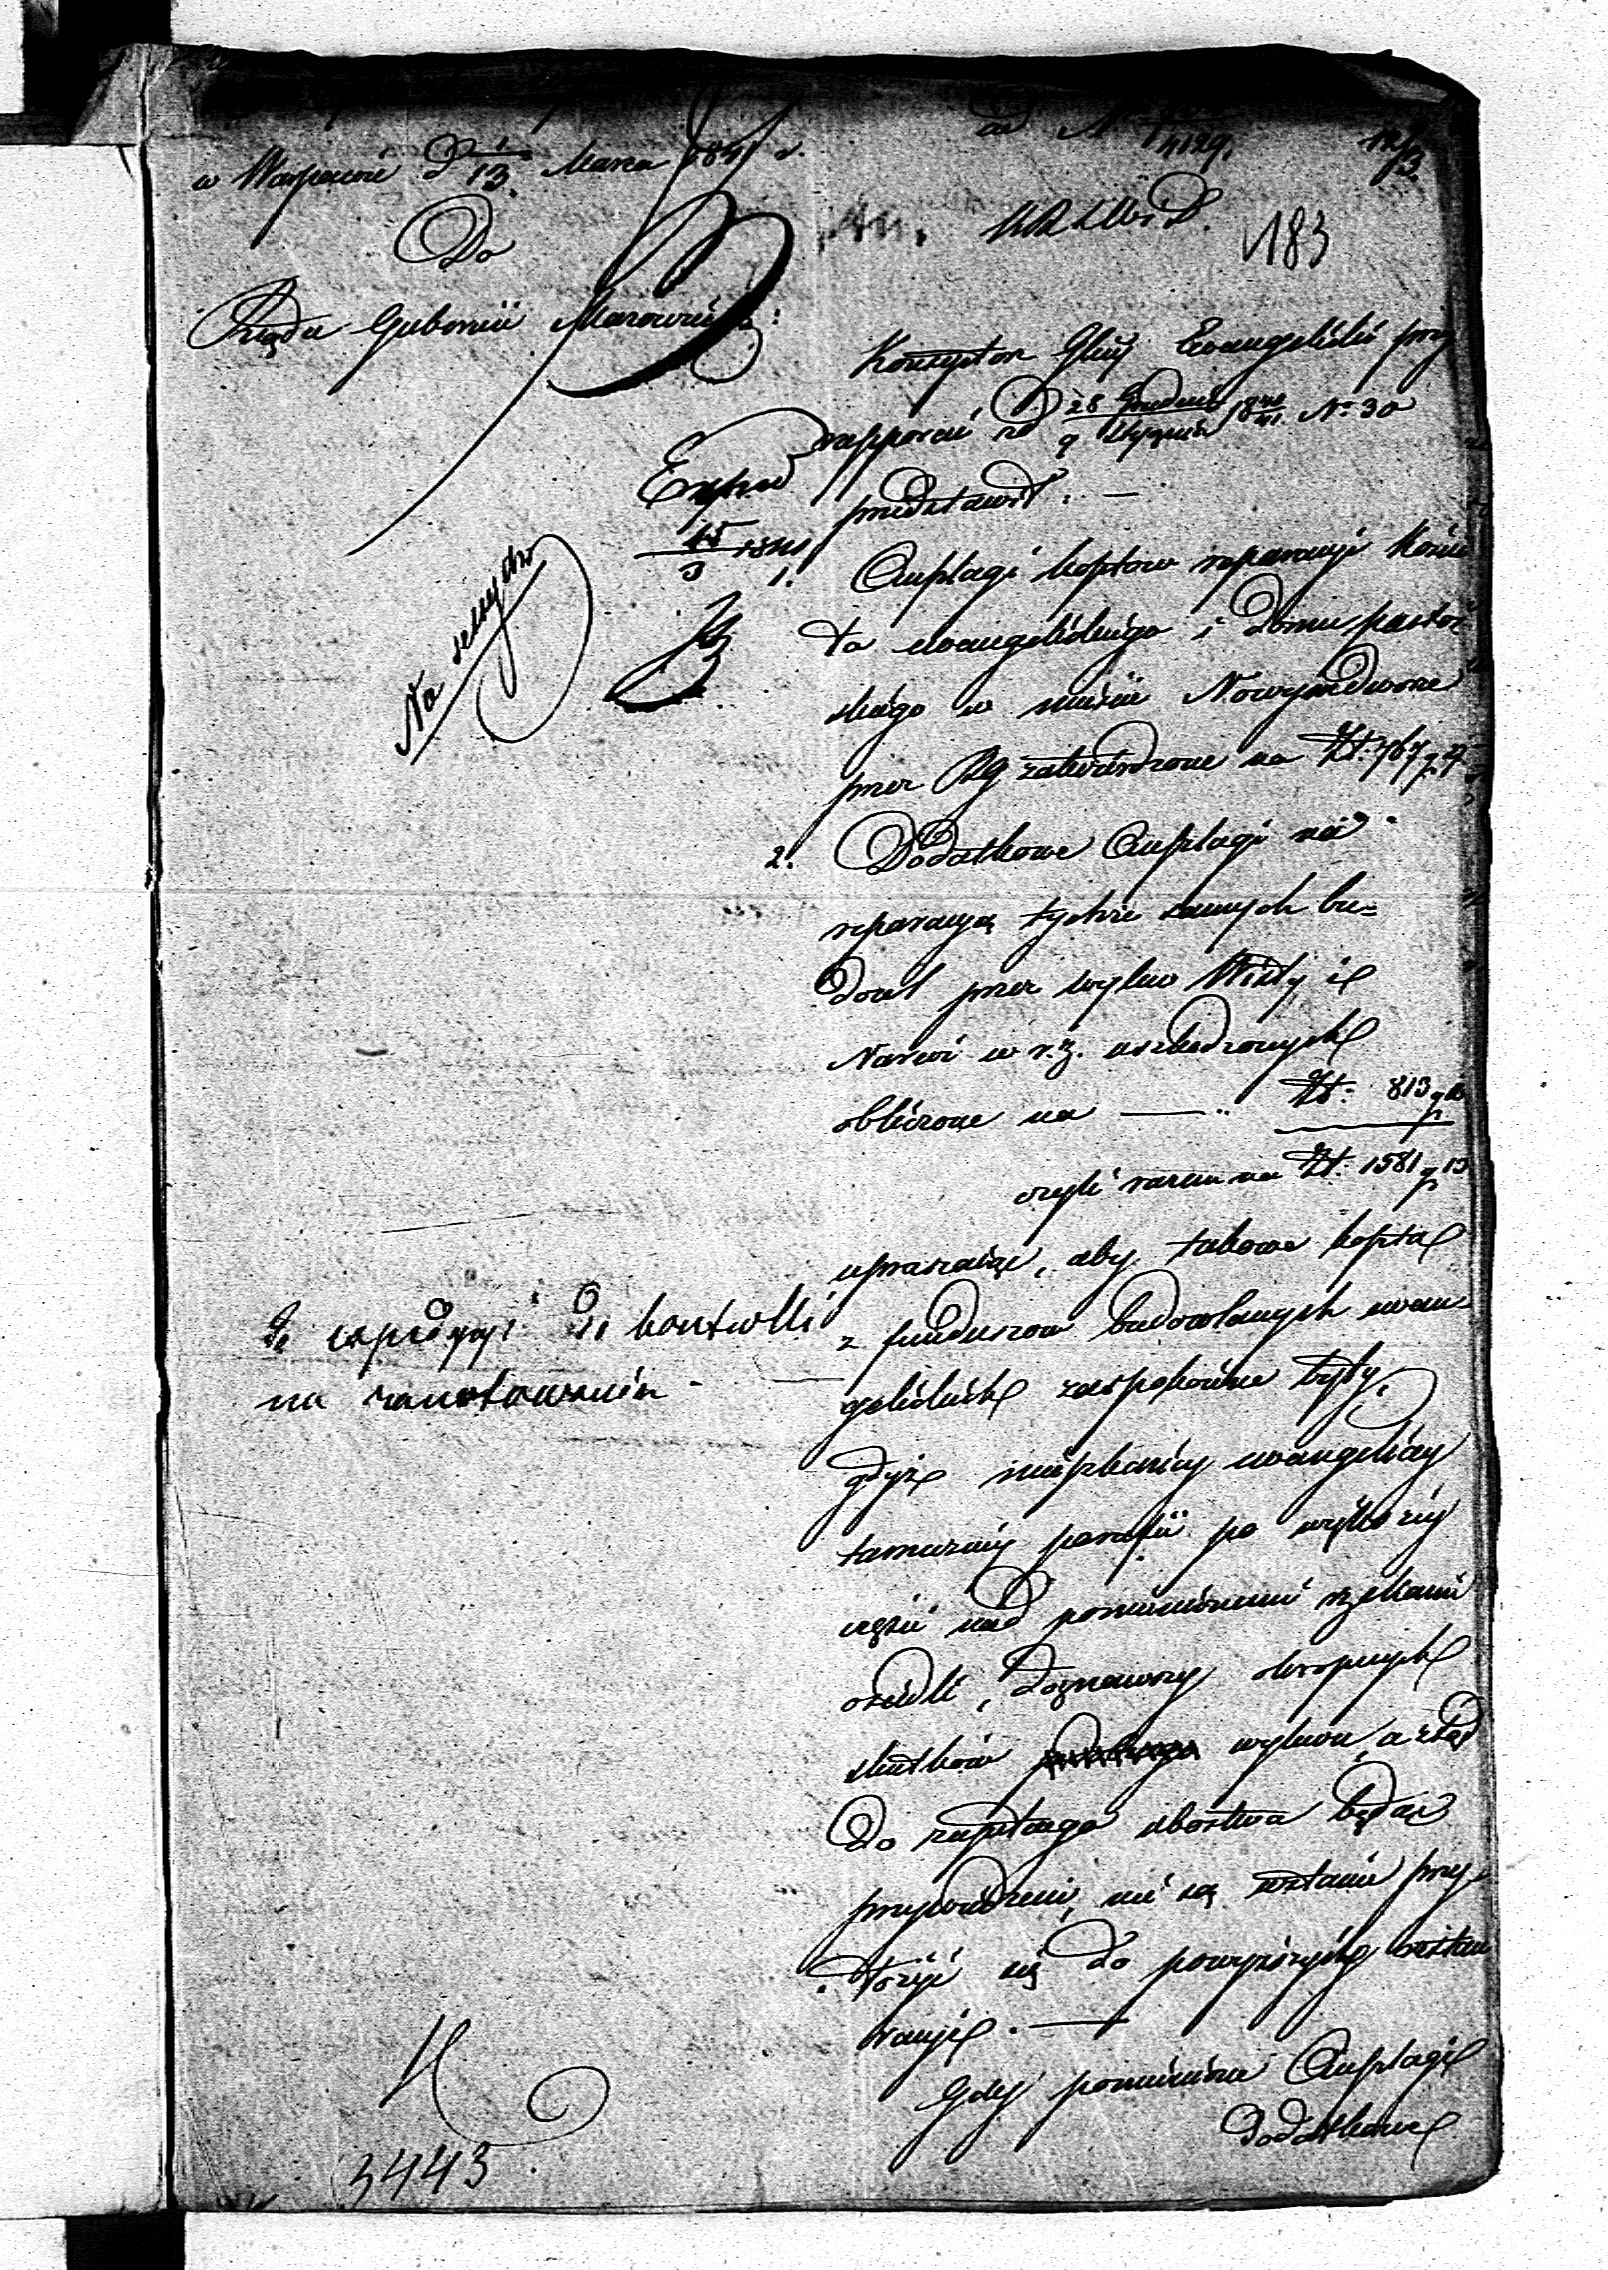 w Warszawie d 1/13 Marca 1841 r.
ad N
4129.
12/3.
183
Do
Rządu Gubernii Mazowieckiej:
Konsystorz Glny Evangelicki przy
rapporcie z d 28 Grudnia / 9 Stycznia 1840/41 No 30
Exped
przedstawił: —
15/3 1841
Na sessyą
1. Anszlagi kosztow reparacyi Kościo
ła ewangelickiego i domu pastor
skiego w mieście Nowymdworze
przez RG zatwierdzone na Zł. 767 g.
2. Dodatkowe Anszlagi na
reparacyą tychże samych bu=
dowl przez wylew Wisły i
Narwi w r. z. uszkodzonych
obliczone na — Zł. 813 g
czyli razem na Zł. 1581 g 15
upraszając, aby takowe koszta
z funduszow budowlanych ewan
gelickich zaspokoione były,
Do expedycyi i do kontrolli
na zanotowanie
gdyż mieszkańcy ewangeliccy
tameczney parafii po większey
części nad pomienionemi rzekami
osiedli, doznawszy okropnych
skutków wylewu, a ztąd
do zupełnego ubostwa będąc
przywiedzeni, nie są w stanie przy
łożyć się do powyższych restau
racyi. —
Gdy pomienione Anszlagi
dodatkowe
3443